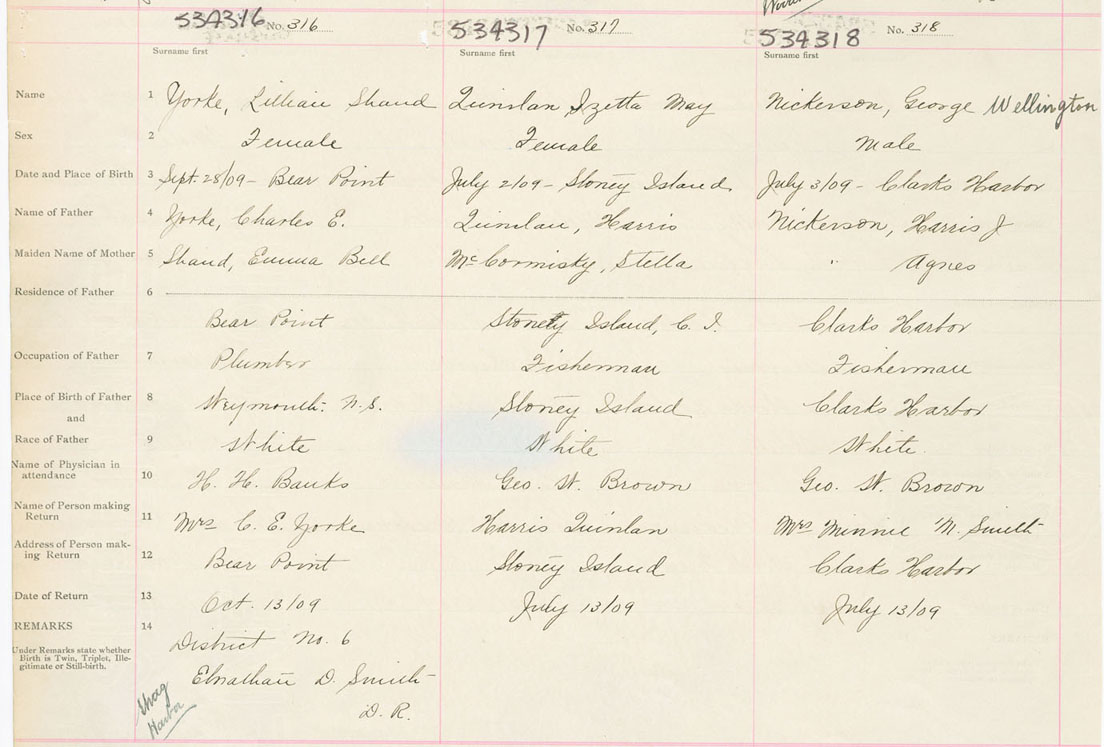 534316 No. 316 534317 No. 317 534318 No. 318
Surname first Surname first Surname first
Name 1 Yorke, Lillian Shand Quinlan Izetta May Nickerson, George Wellington
Sex 2 Female Female Male
Date and Place of Birth 3 Sept. 28/09 - Bear Point July 2/09 - Stoney Island July 3/09 - Clarks Harbor
Name of Father 4 Yorke, Charles E. Quinlan, Harris Nickerson, Harris J
Maiden Name of Mother 5 Shand, Emma Bell McCormisky, Stella " Agnes
Residence of Father 6
Bear Point Stoney Island, C. I. Clarks Harbor
Occupation of Father 7 Plumber Fisherman Fisherman
Place of Birth of Father 8 Weymouth. N.S. Stoney Island Clarks Harbor
and
Race of Father 9 White White White.
Name of Physician in
attendance 10 H. H. Banks Geo. W. Brown Geo. W. Brown
Name of Person making
Return 11 Mrs C. E. Yorke Harris Quinlan Mrs Minnie M. Smith
Address of Person mak-
ing Return 12 Bear Point Stoney Island Clarks Harbor
Date of Return 13 Oct. 13/09 July 13/09 July 13/09
REMARKS 14 District No. 6
Under Remarks state whether
Birth is Twin, Triplet, Ille-
gitimate or Still-birth.
Elnathan D. Smith
D. R.
Shag
Harbor